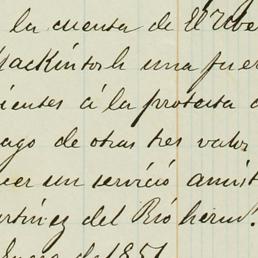 la cuenta de El Ube
Mackintosh una fuer
ientes á la protesta
ago de otras tres valor
cer un servicio amist
artinez del Rio herm.
Enero de 1851